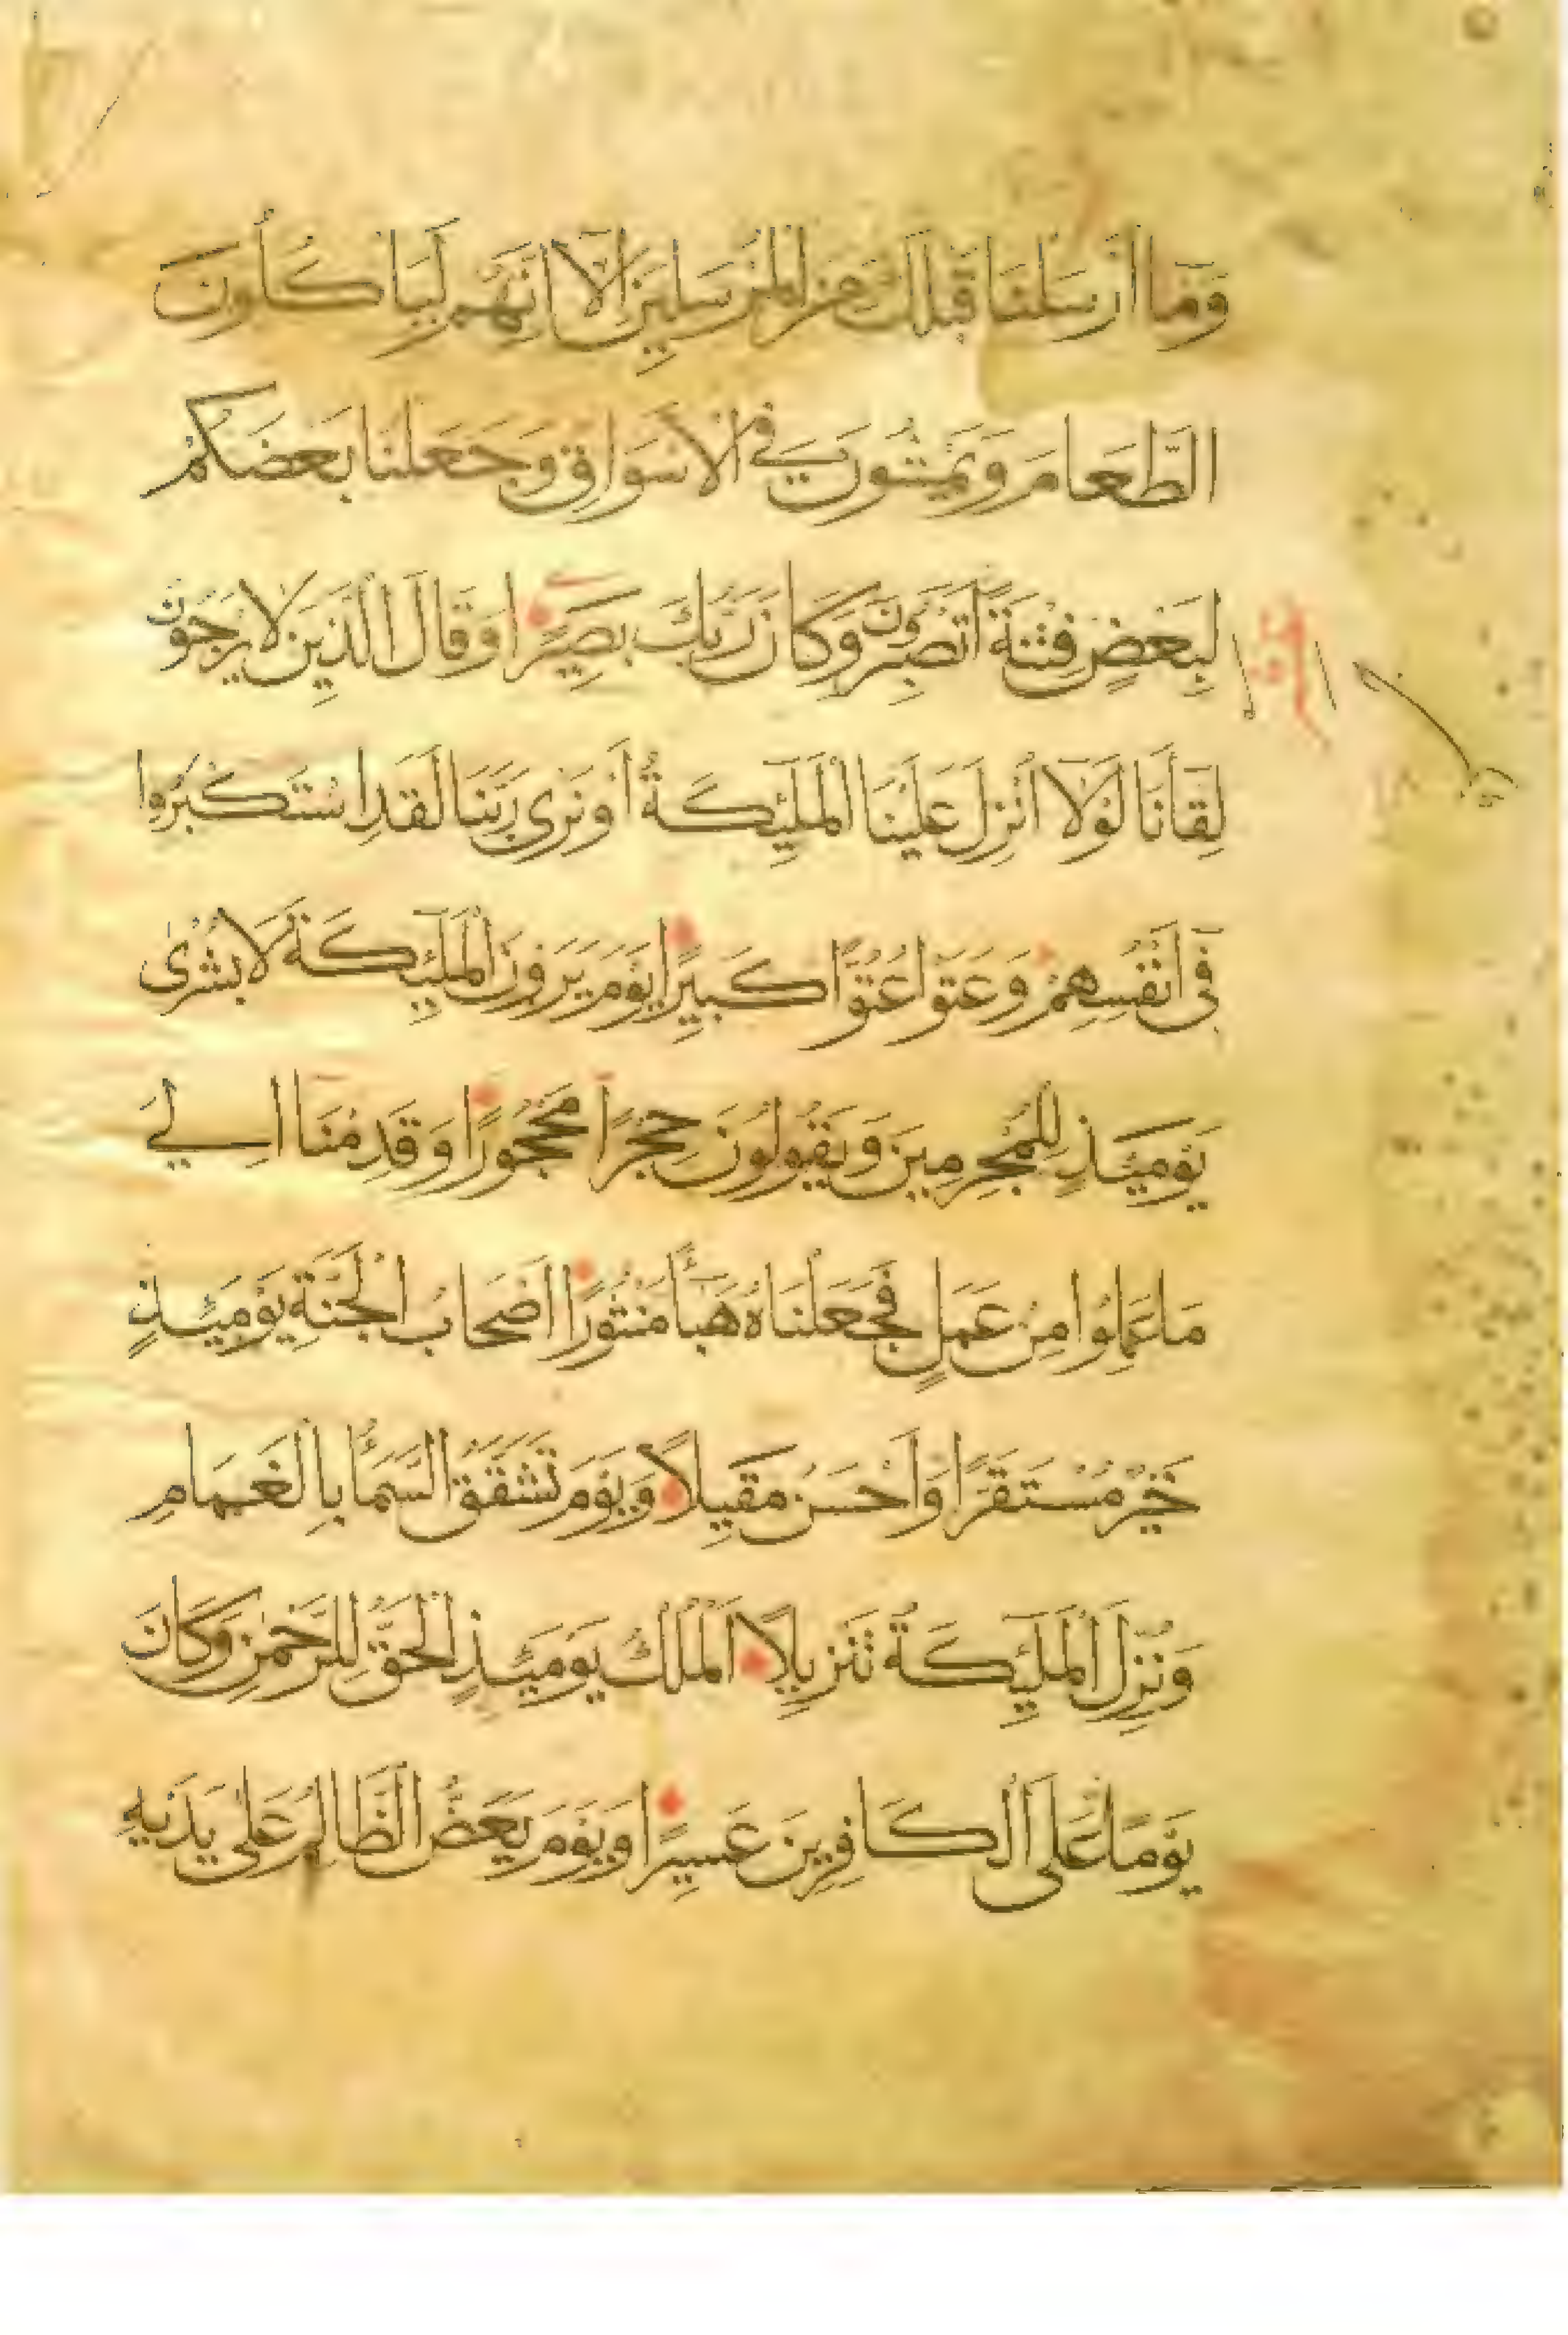 وَمَا أَرْسَلْنَا قَبْلَكَ مِنَ الْمُرْسَلِينَ إِلَّا إِنَّهُمْ لَيَاكُلُونَ
الطَّعَامَ وَيَمْشُونَ فِي الْأَسْوَاقِ وَجَعَلْنَا بَعْضَكُمْ
لِبَعْضٍ فِتْنَةً أَتَصْبِرُونَ وَكَانَ رَبُّكَ بَصِيرًا وَقَالَ الَّذِينَ لَا يَرْجُونَ
لِقَآنَا لَوْلَآ أُنْزِلَ عَلَيْنَا الْمَلٓئِكَةُ أَوْ نَرَى رَبَّنَا لَقَدِ اسْتَكْبَرُوا
فِي أَنْفُسِهِمْ وَعَتَوْا عُتُوًّا كَبِيرًا يَوْمَ يَرَوْنَ الْمَلٓئِكَةَ لَا بُشْرَى
يَوْمَئِذٍ لِلْمُجْرِمِينَ وَيَقُولُونَ حِجْرًا مَحْجُورًا وَقَدِمْنَا إِلَى
مَا عَمِلُوا مِنْ عَمَلٍ فَجَعَلْنَاهُ هَبَآً مَنْثُورًا أَصْحَابُ الْجَنَّةِ يَوْمَئِذٍ
خَيْرٌ مُسْتَقَرًّا وَأَحْسَنُ مَقِيلًا وَيَوْمَ تَشَقَّقُ السَّمَآ بِالْغَمَامِ
وَنُزِّلَ الْمَلٓئِكَةُ تَنْزِيلًا الْمُلْكُ يَوْمَئِذٍ الْحَقُّ لِلرَّحْمٰنِ وَكَانَ
يَوْمًا عَلَى الْكَافِرِينَ عَسِيرًا وَيَوْمَ يَعَضُّ الظَّالِمُ عَلَى يَدَيْهِ